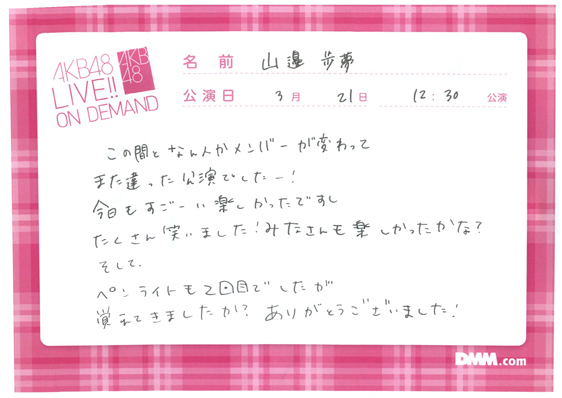 AKB48
LIVE!!
ON DEMAND
AKB
48
名前 山邊 歩夢
公演日 3月 21日 12:30 公演
この間となん人かメンバーが変わって
また違った公演でしたー!
今日もすごーい楽しかったですし
たくさん笑いました!みなさんも楽しかったかな?
そして、
ペンライトも2回目でしたが
覚えてきましたか? ありがとうございました!
DMM.com